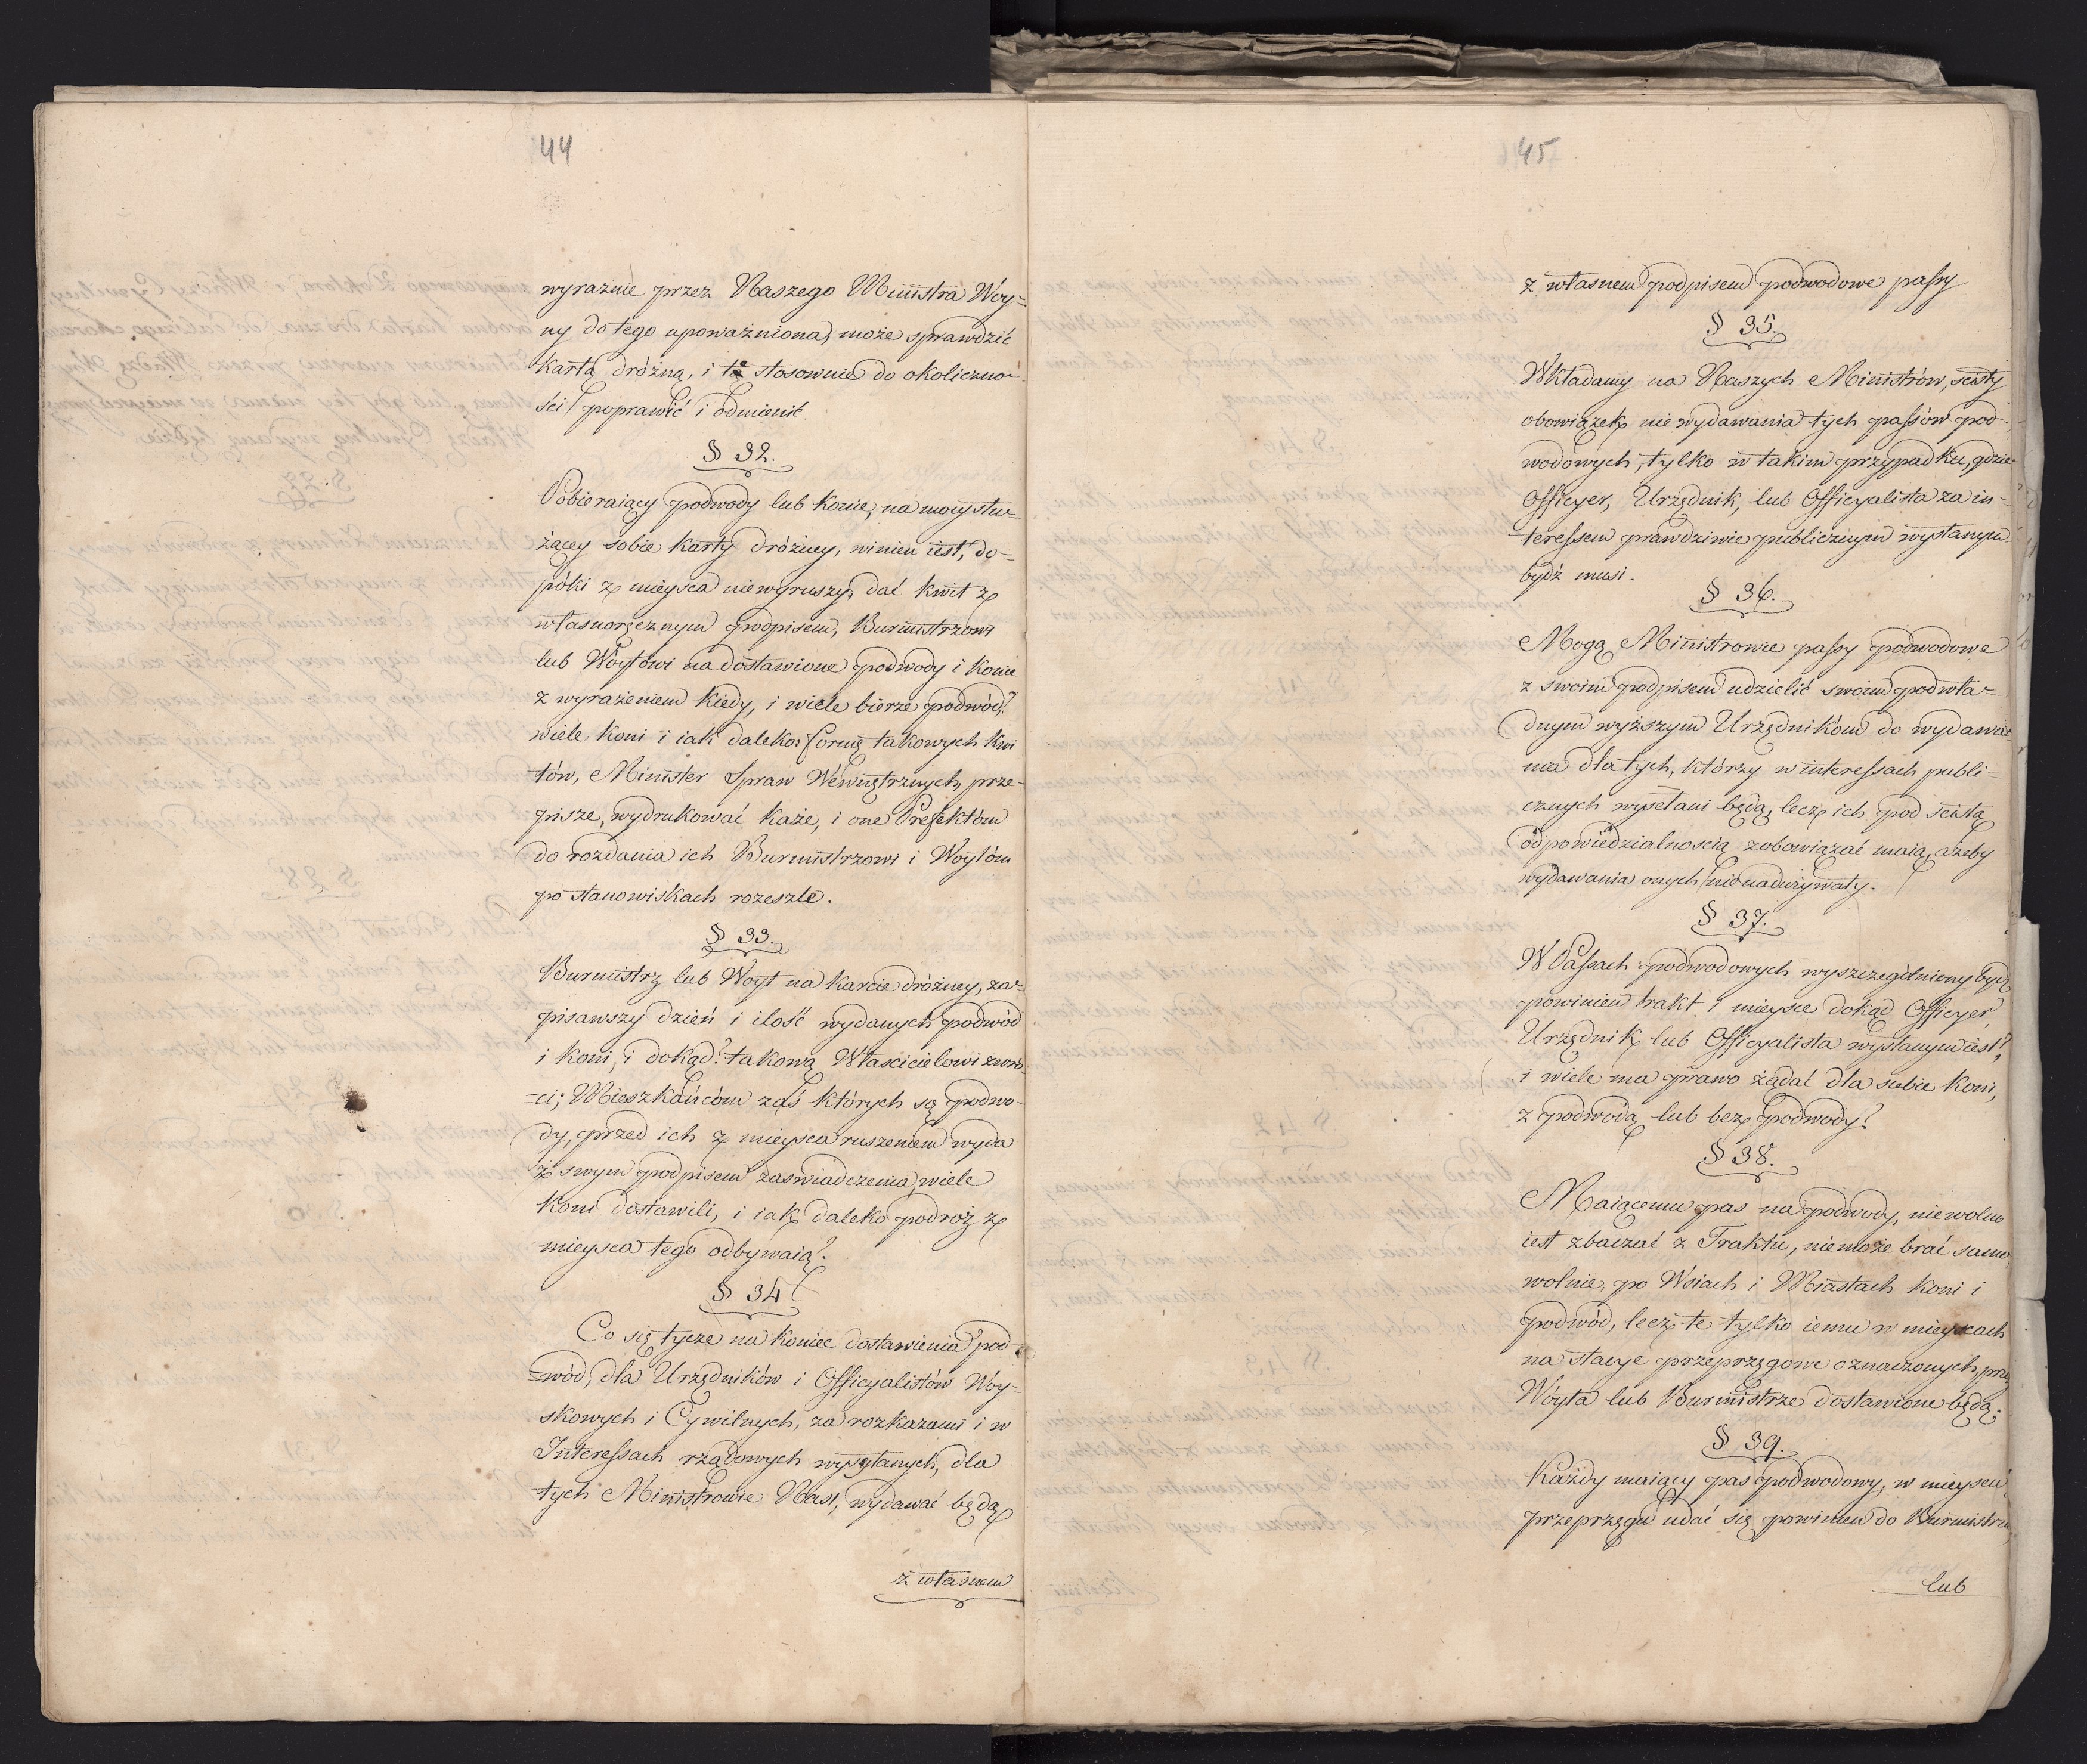 44
wyraznie przez Naszego Ministra Woy=
ny do tego upoważniona, może sprawdzić
kartą dróżną, i tę stosownie do okoliczno-
ści poprawić i odmienić
§ 32.
Pobieraiący podwody lub konie, na mocy słu-
żącey sobie karty dróżney, winien iest, do-
póki z mieysca niewyruszy, dać kwit z
własnoręcznym podpisem, Burmistrzowi
lub Woytowi na dostawione podwody i konie
z wyrażeniem kiedy, i wiele bierze podwód?
wiele koni i iak daleko? formę takowych kwi
tów, Minister Spraw Wewnętrznych, prze-
pisze, wydrukować każe, i one Prefektóm
do rozdania ich Burmistrzowi i Woytóm
po stanowiskach rozeszle.
§ 33.
Burmistrz lub Woyt na karcie dróżney, za-
pisawszy dzień i ilość wydanych podwód
i koni, i dokąd? takową Właścicielowi zwró-
=ci; Mieszkańcóm zaś których są podwo-
dy, przed ich z mieysca ruszeniem wyda
z swym podpisem zaswiadczenia, wiele
koni dostawili, i iak daleko podróż z
mieysca tego odbywaią?
§ 34
Co się tycze na koniec dostawienia pod-
=wód, dla Urzędników i Officyalistów Woy-
skowych i Cywilnych, za rozkazami i w
Interessach rządowych wysyłanych, dla
tych Ministrowie Nasi, wydawać będą
z własnem
45
z własnem podpisem podwodowe passy
§ 35.
Wkładamy na Naszych Ministrów, scisły
obowiązek nie wydawania tych passów pod-
wodowych, tylko w takim przypadku, gdzie
Officyer, Urzędnik, lub Officyalista za in-
-teressem prawdziwie publicznym wysłanym
bydź musi.
§ 36.
Mogą Ministrowie passy podwodowe
z swoim podpisem udzielić swoim podwła-
dnym wyższym Urzędnikóm do wydawa-
nia dla tych, którzy w interessach publi-
cznych wysełani będą, lecz ich pod scisłą
odpowiedzialnoscią zobowiązać maią, ażeby
wydawania onych nie nadużywały.
§ 37.
W Passach podwodowych wyszczególniony bydź
powinien trakt i mieysce dokąd Officyer
Urzędnik lub Officyalista wysłanym iest?
i wiele ma prawo żądać dla siebie koni,
z podwodą lub bez podwody?
§ 38.
Maiącemu pas na podwody, niewolno
iest zbaczać z Traktu, niemoże brać samo
wolnie, po Wsiach i Miastach koni i
podwód, lecz te tylko iemu w mieyscach
na stacye przeprzęgowe oznaczonych, prze
Woyta lub Burmistrze dostawione będą;
§ 39.
Każdy maiący pas podwodowy, w mieyscu
przeprzęgu udać się powinien do Burmistrza
lub